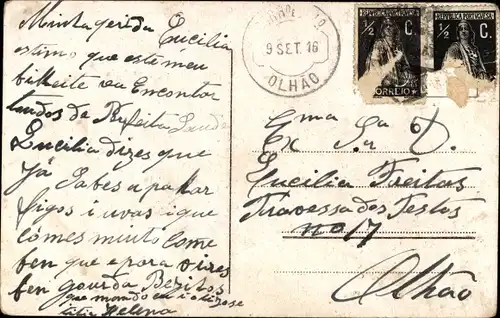 Minha qerida Lucilia
estimo que este meu
bilheite va Encontar
Lucilia dizes que
Já Sabes apanhar
figos i uvas i que
cômes muinto come
ben que e para vires
ben gourda Bezitos
que mando
tia Helena
9 SET. 16
OLHÃO
REPUBLICA PORTUGUESA
½ C.
CORREIO
REPUBLICA PORTUGUESA
½ C.
Ex.ma Sr.a D.
Lucilia Freitas
Travessa dos Testos
no 17
Olhão